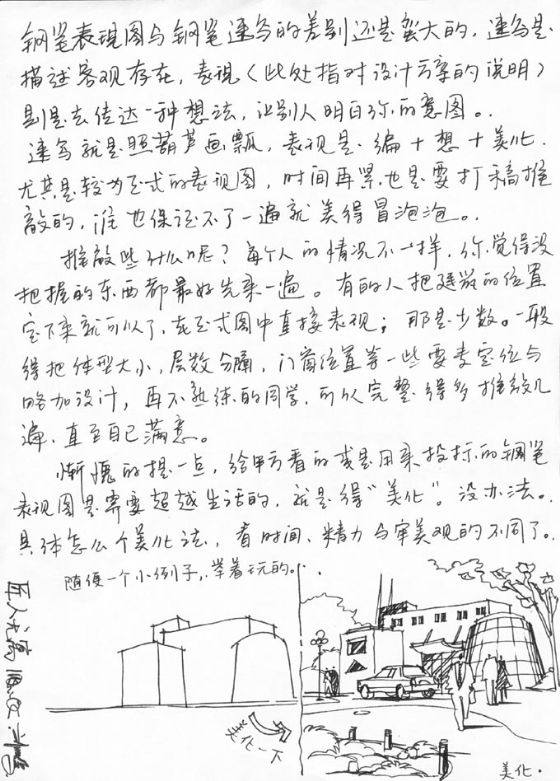 钢笔表现图与钢笔速写的差别还是蛮大的，速写是
描述客观存在，表现（此处指对设计方案的说明）
则是去传达一种想法，让别人明白你的意图。
速写就是照葫芦画瓢，表现是编＋想＋美化．
尤其是较为正式的表现图，时间再紧也是要打稿推
敲的，谁也保证不了一遍就美得冒泡泡。
推敲些什么呢？每个人的情况不一样，你觉得没
把握的东西都最好先来一遍。有的人把建筑的位置
定下来就可以了，在正式图中直接表现；那是少数。一般
得把体型大小，层数分隔，门窗位置等一些要素定位与
略加设计，再不熟练的同学，可以完整得多推敲几
遍，直至自己满意。
惭愧的提一点，给甲方看的或是用来投标的钢笔
表现图是需要超越生活的，就是得“美化”。没办法。
具体怎么个美化法，看时间、精力与审美观的不同了。
随便一个小例子，举着玩的。
美化一下
美化．